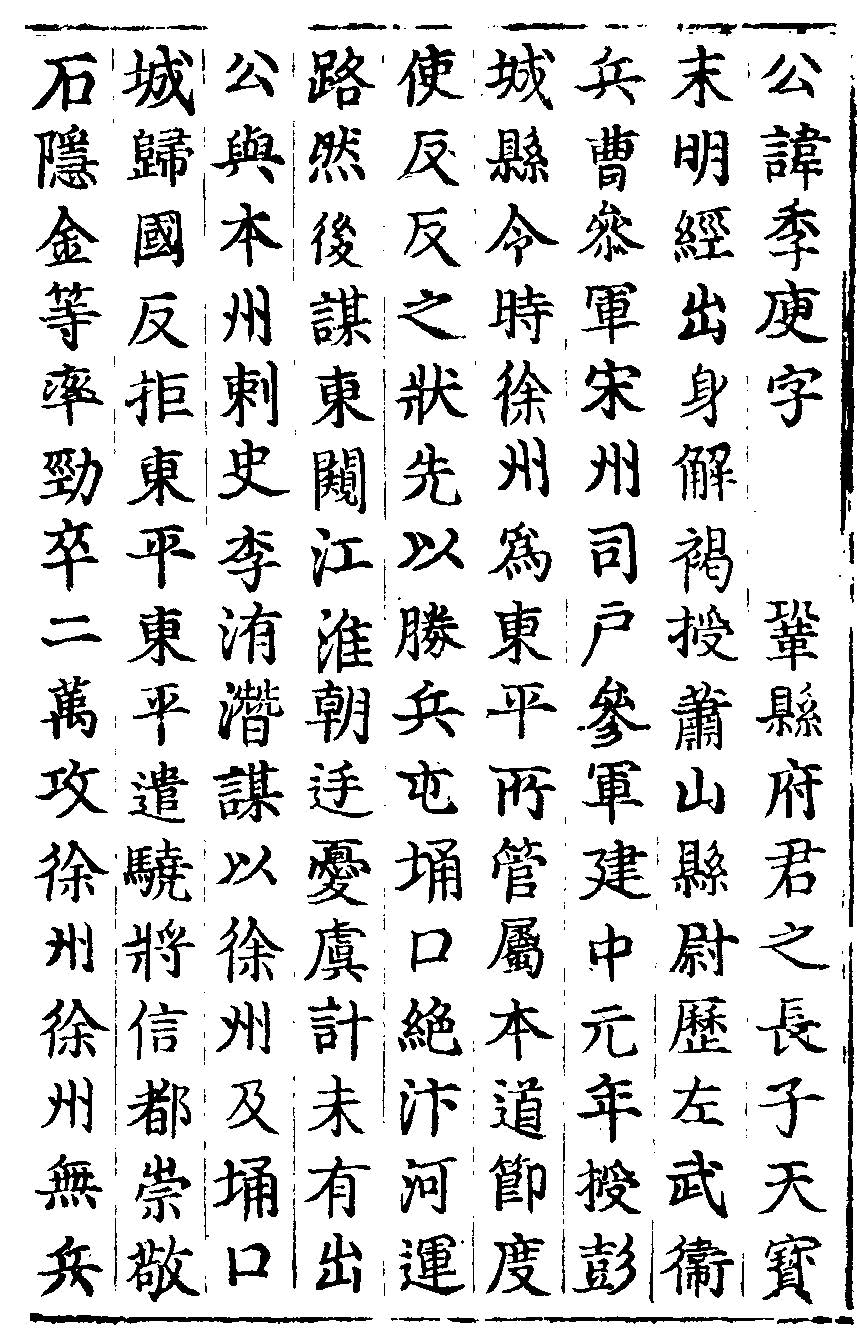 公諱季庾字　　鞏縣府君之長子天寶
末明經出身解褐授蕭山縣尉歷左武衛
兵曹叅軍宋州司戶參軍建中元年授彭
城縣令時徐州爲東平所管屬本道節度
使反反之狀先以勝兵屯埇口絕汴河運
路然後謀東闚江淮朝廷憂虞計未有出
公與本州刺史李洧潛謀以徐州及埇口
城歸國反拒東平東平遣驍將信都崇敬
石隱金等率勁卒二萬攻徐州徐州無兵